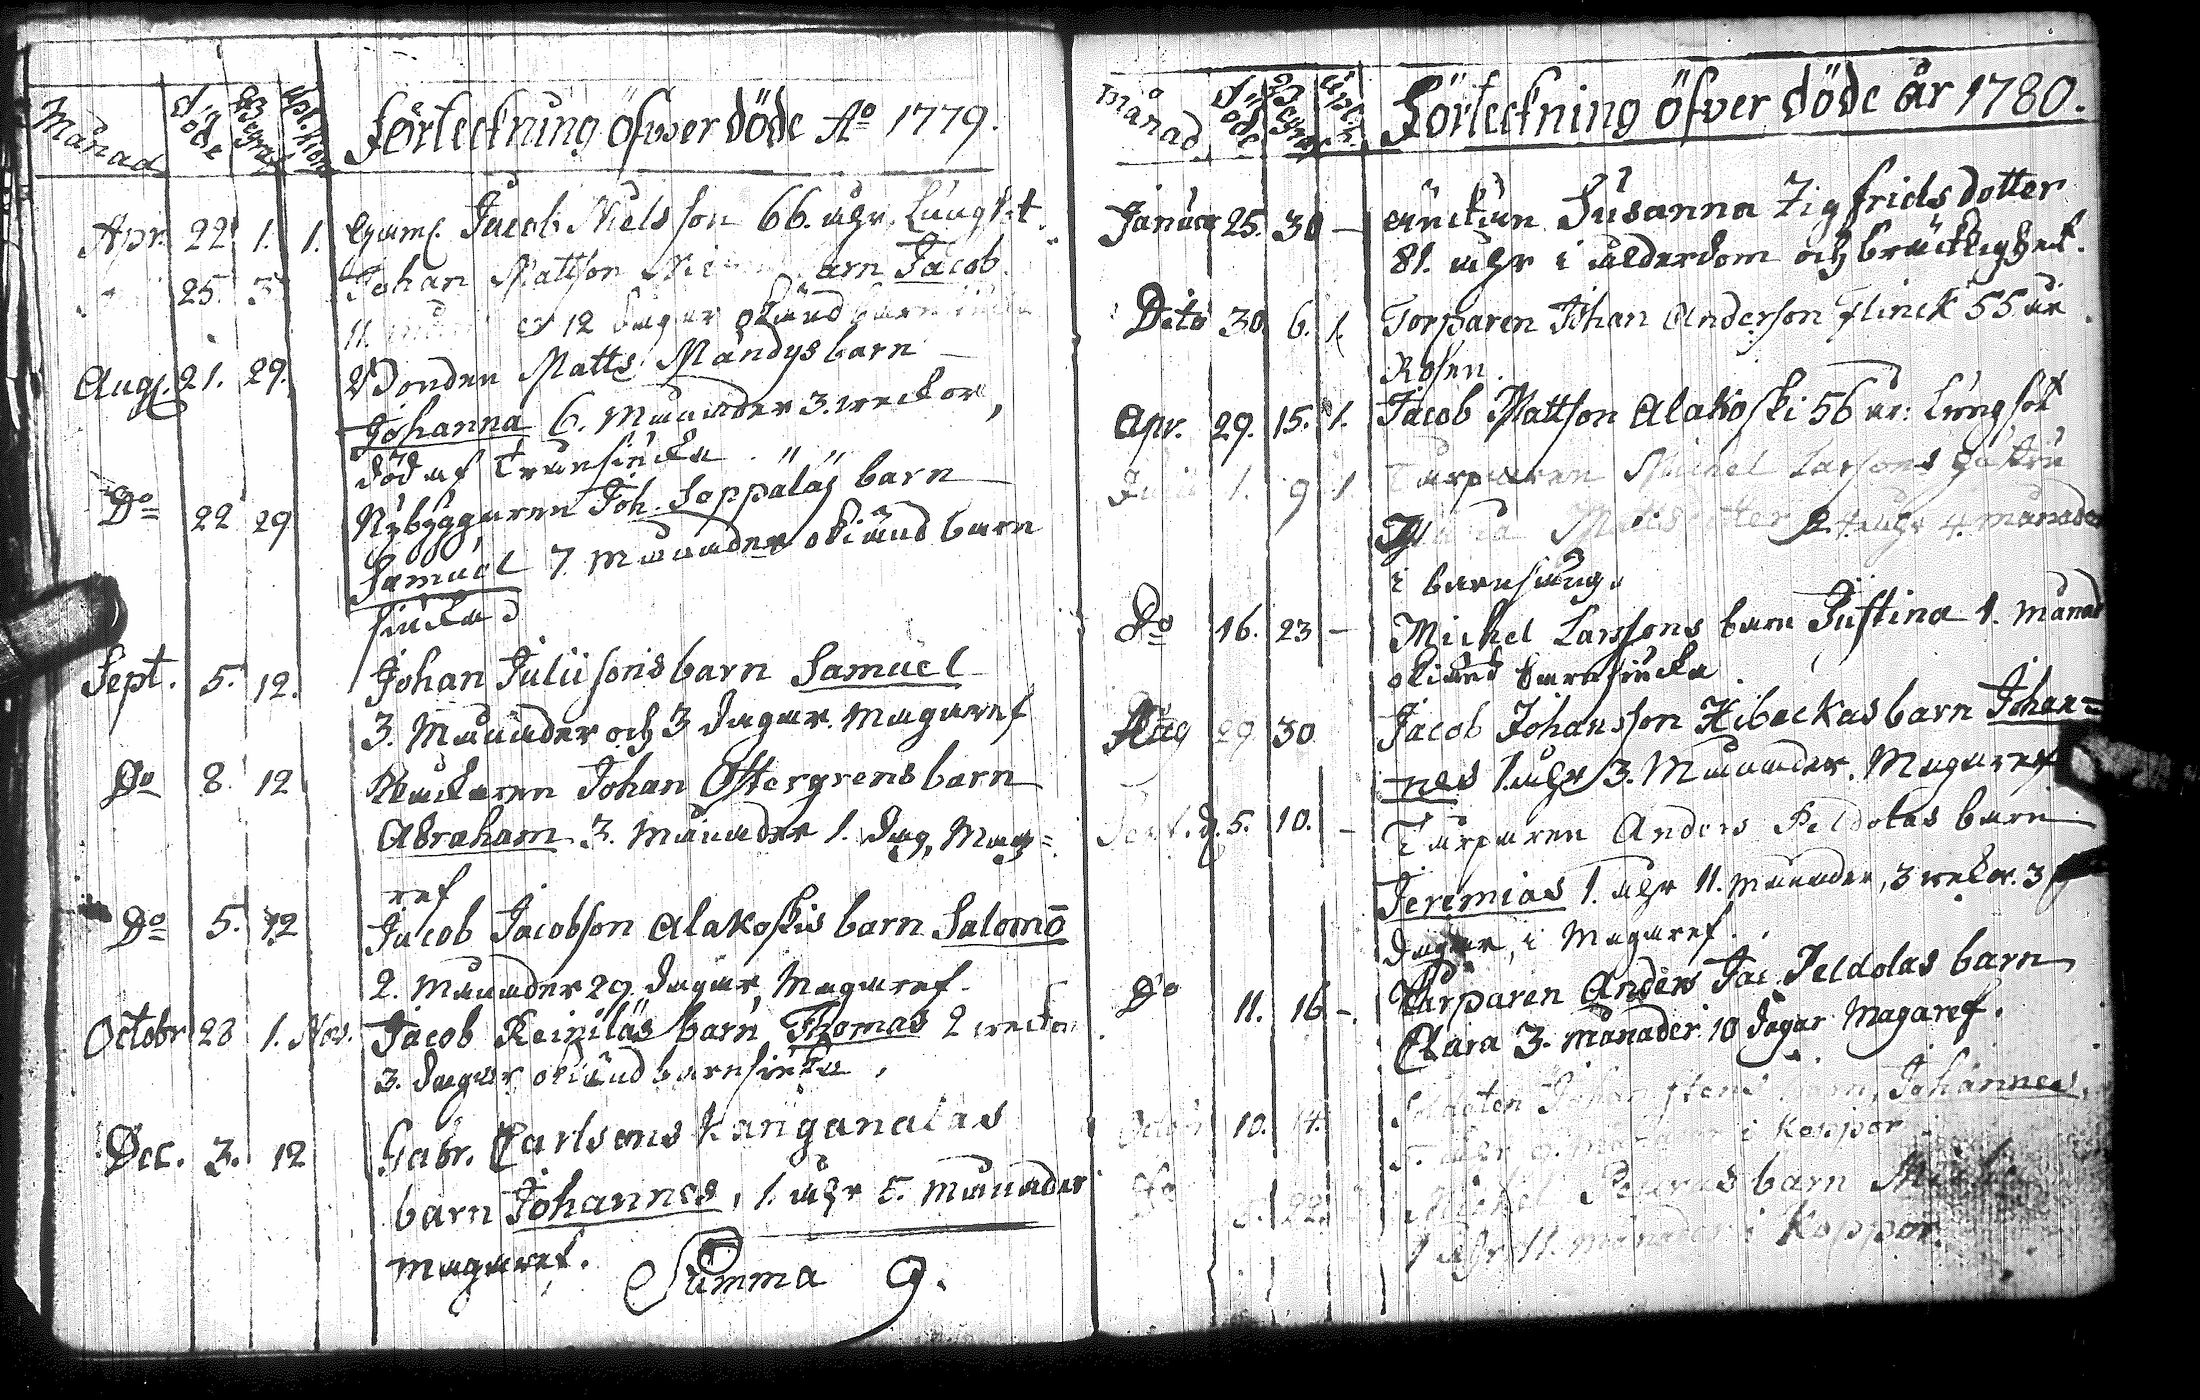 Månad Död Begraf Upl. Kiöp Förteckning öfver döde Ao 1779.
Apr. 22. 1. 1. Gaml. Jacob Nielsson 66. åhr, Lungsot
25. 3. Johan Mattson barn Jacob
11. och 12 dagar okänd barnsiuka
Aug. 21. 29. Bonden Matts Mandys barn
Johanna 6. Månader 3. weckor,
död af Transiucka
Do 22 29 Nybyggaren Joh. Seppaläs barn
Samuel 7. Månader okiänd barn
siucka
Sept. 5. 12. Johan Juliisons barn Samuel
3. Månader och 3 dagar. Magaref
Do 8. 12 Johan Östergrens barn
Abraham 3. Månader 1. dag, Mag=
ref
Do 5. 12 Jacob Jacobson Alakoskis barn Salomō
2. Månader 29 dagar, Magaref.
Octobr 28 1. Nov. Jacob Reiniläs barn Thomas 2 weckor
3. dagar okiänd barnsiuka,
Dec. 3. 12 Gabr. Carlsons Kanganalas
barn Johannes, 1. åhr 5. Månader
Magaref.
Summa 9.
Månad Död Begraf Förteckning öfver döde år 1780.
Januar 25. 30 – Änckan Susanna Zigfrids dotter
81. åhr i ålderdom och bräcklighet.
Dito 30. 6. 1. Torparen Johan Anderson Flinck 55 år
Rosen.
Apr. 29. 15. 1. Jacob Mattson Alakoski 56 år: Lungsot
1. 9 1. Torparen Michel Larsons hustru
24 åhr 4. månader
i barnsäng.
Do 16. 23 – Michel Larssons barn Justina 1. Månad
okiänd barnsiucka
Aug 29 30 Jacob Johansson Hibeckas barn Johan=
nes 1. åhr 3. Månader. Magaref
Sept. d. 5. 10. – Torparen Anders Peldolas barn
Jeremias 1. åhr 11. Månader, 3 wekor. 3
dagar, i Magaref.
Do 11. 16 –. Torparen Anders Jac. Peldolas barn
Clara 3. månader 10 dagar Magaref.
10. 14. Soldaten Johan barn, Johannes,
i Koppor
Do 22. Michel barn
1 åhr 11. månader i Koppor.